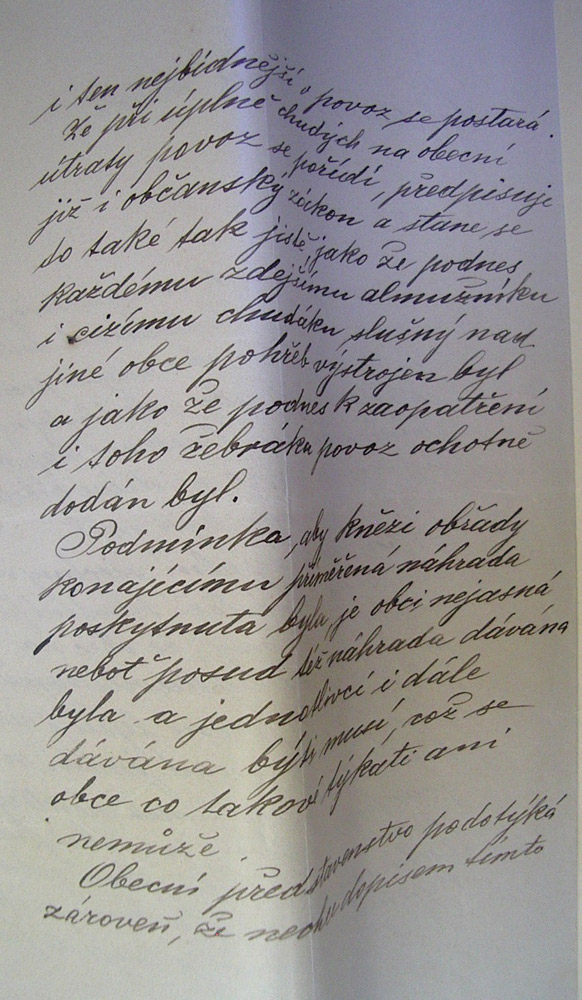 i ten nejbídnější, povoz se postará.
Že při úplně chudých na obecní
útraty povoz se pořídí, předpisuje
již i občanský zákon a stane se
to také tak jistě, jako že podnes
každému zdejšímu almužníku
i cizímu chudáku slušný nad
jiné obce pohřeb výstrojen byl
a jako že podnes k zaopatření
i toho žebráka povoz ochotně
dodán byl.
Podmínka, aby knězi obřady
konajícímu přiměřená náhrada
poskytnuta byla, je obci nejasná
neboť posud též náhrada dávána
byla a jednotlivci i dále
dávána býti musí, což se
obce co takové týkati ani
nemůže.
Obecní představenstvo podotýká
zároveň, že dopisem tímto